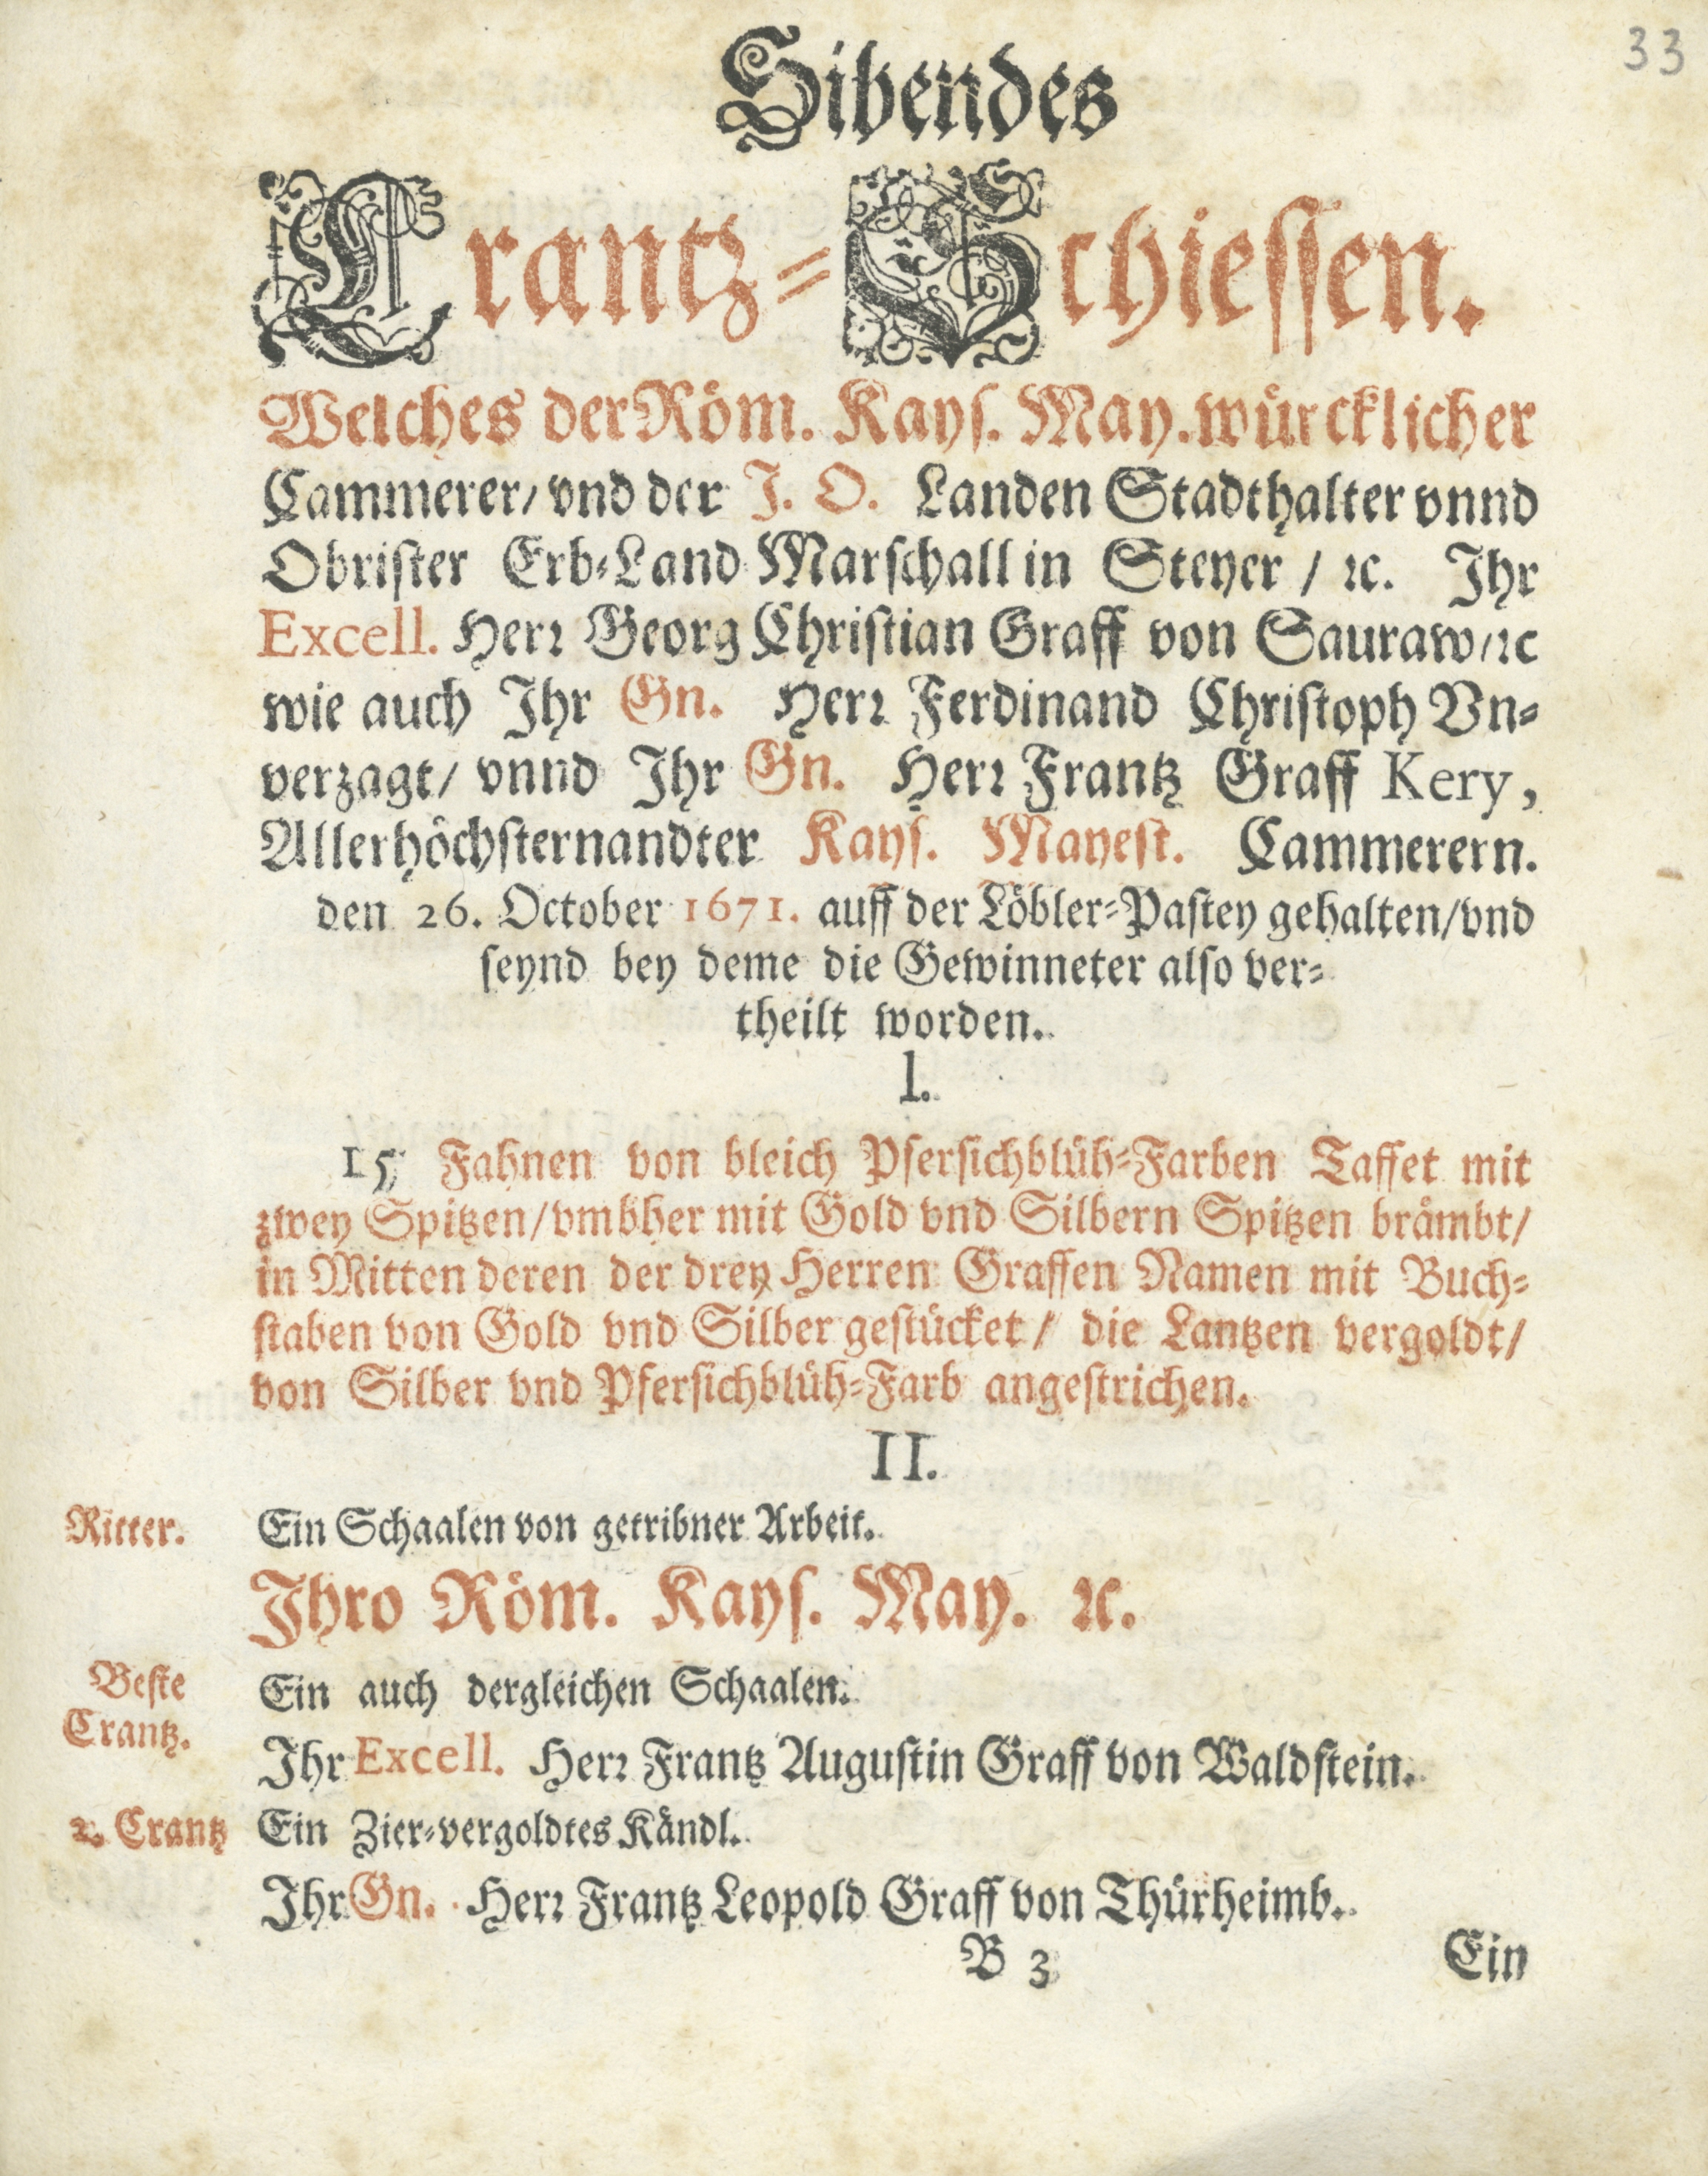 33
Sibendes
Crantz-Schiessen.
Welches der Röm. Kays. May. würcklicher
Cammerer/ vnd der J. O. Landen Stadthalter vnnd
Obrister Erb-Land Marschall in Steyer / ꝛc. Ihr
Excell. Herꝛ Georg Christian Graff von Sauraw/ꝛc
wie auch Ihr Gn. Herꝛ Ferdinand Christoph Vn-
verzagt/ vnnd Ihr Gn. Herꝛ Frantz Graff Kery,
Allerhöchsternandter Kays. Mayest. Cammerern.
den 26. October 1671. auff der Löbler-Pastey gehalten/vnd
seynd bey deme die Gewinneter also ver-
theilt worden.
I.
15 Fahnen von bleich Pfersichblüh-Farben Taffet mit
zwey Spitzen/vmbher mit Gold vnd Silbern Spitzen brämbt/
in Mitten deren der drey Herren Graffen Namen mit Buch-
staben von Gold vnd Silber gestücket/ die Lantzen vergoldt/
von Silber vnd Pfersichblüh-Farb angestrichen.
II.
Ritter. Ein Schaalen von getribner Arbeit.
Ihro Röm. Kays. May. ꝛc.
Beste Ein auch dergleichen Schaalen.
Crantz.
Ihr Excell. Herꝛ Frantz Augustin Graff von Waldstein.
2. Crantz Ein Zier-vergoldtes Kändl.
Ihr Gn. Herꝛ Frantz Leopold Graff von Thürheimb.
B 3 Ein